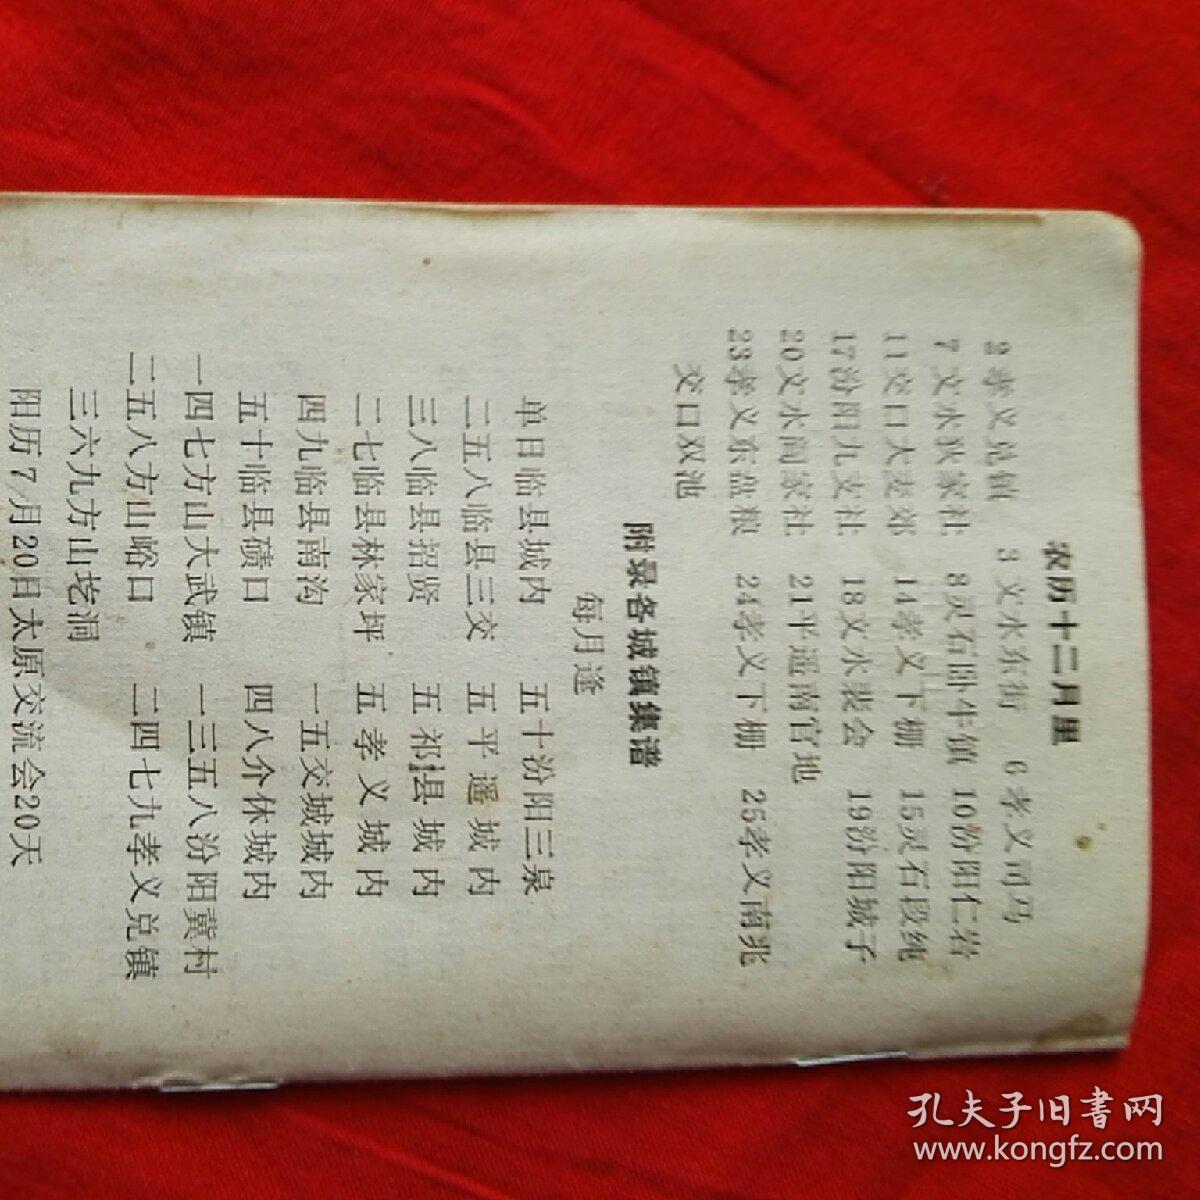 农历十二月里
2孝义兑镇 3文水东街 6孝义司马
7文水狄家社 8灵石卧牛镇 10汾阳仁岩
11交口大麦郊 14孝义下栅 15灵石段纯
17汾阳九支社 18文水裴会 19汾阳城子
20文水阎家社 21平遥南官地
23孝义东盘粮 24孝义下栅 25孝义南兆
交口双池
附录各城镇集谱
每月逢
单日临县城内 五十汾阳三泉
二五八临县三交 五平遥城内
三八临县招贤 五祁县城内
二七临县林家坪 五孝义城内
四九临县南沟 一五交城城内
五十临县碛口 四八介休城内
一四七方山大武镇 一三五八汾阳冀村
二五八方山峪口 二四七九孝义兑镇
三六九方山圪洞
阳历7月20日太原交流会20天
孔夫子旧书网
www.kongfz.com